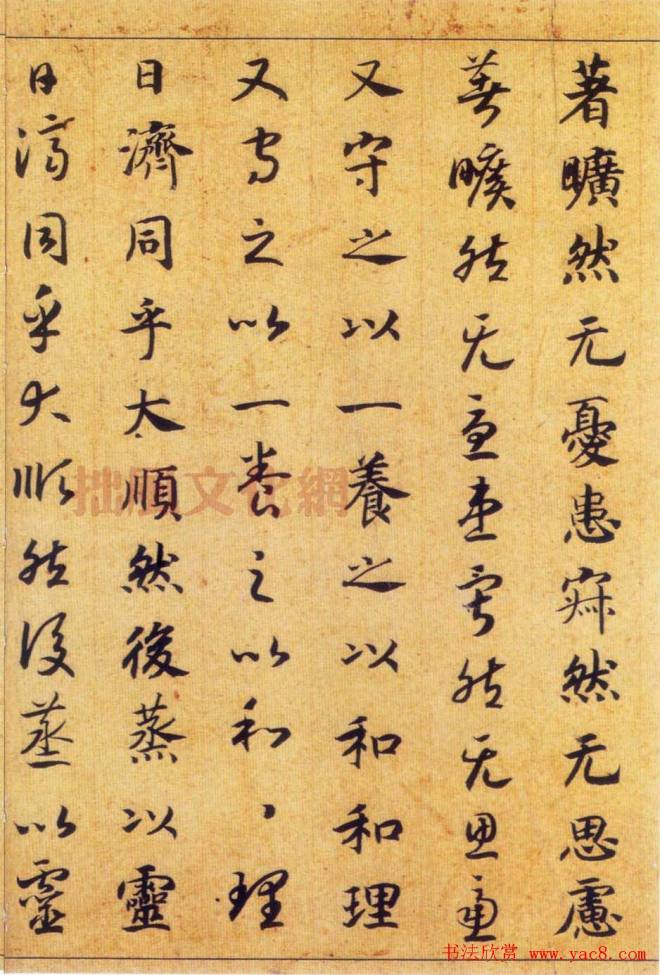 著曠然无憂患寂然无思慮
著曠然无憂患寂然无思慮
又守之以一養之以和和理
又守之以一養之以和、理
日濟同乎太順然後蒸以靈
日濟同乎大順然後蒸以靈
拙風文化網
书法欣赏 www.yac8.com